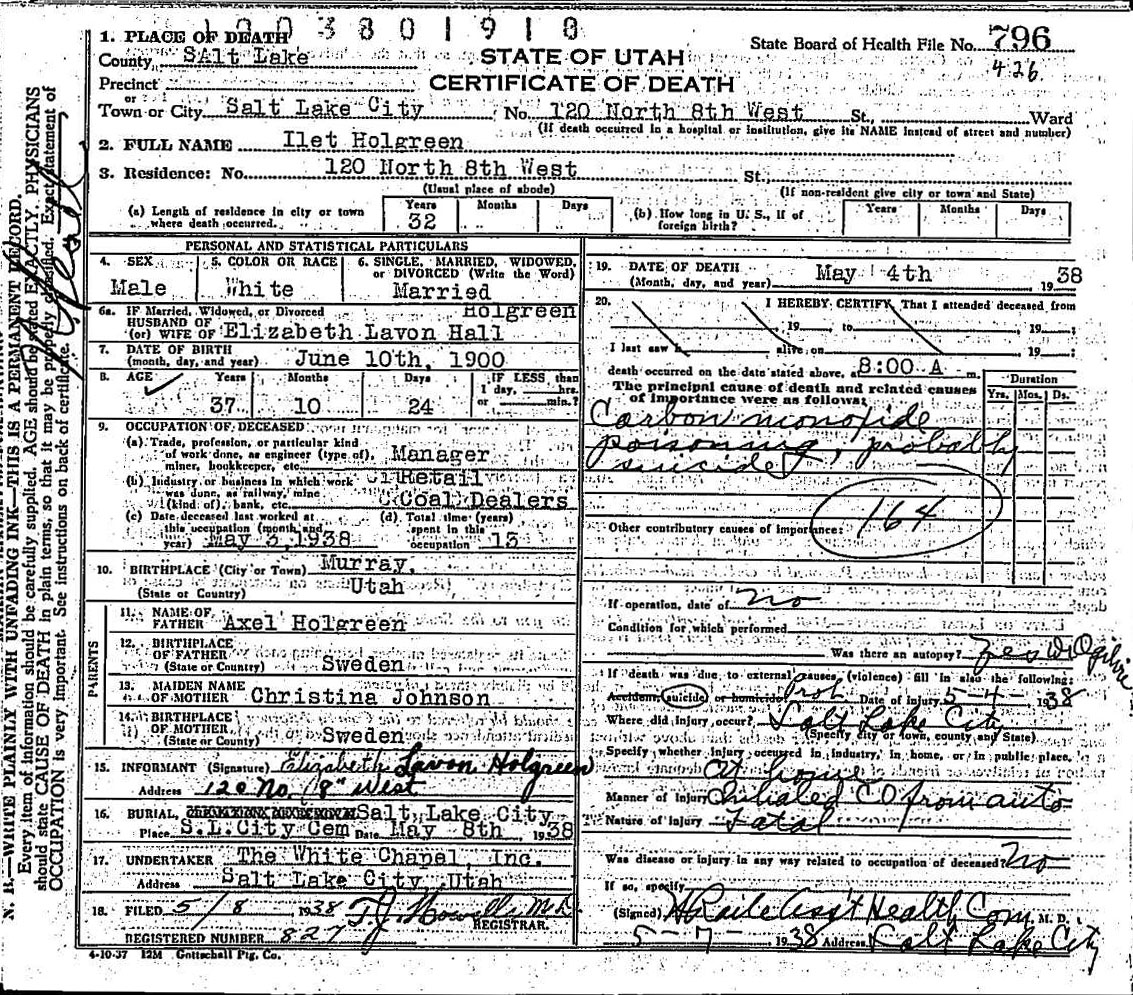 1003801910
1. PLACE OF DEATH
County SAlt Lake
STATE OF UTAH
State Board of Health File No. 796
Precinct
CERTIFICATE OF DEATH
426
or
Town or City Salt Lake City No. 120 North 8th West St., Ward
(If death occurred in a hospital or institution, give its NAME instead of street and number)
2. FULL NAME Ilet Holgreen
3. Residence: No. 120 North 8th West St.,
(Usual place of abode) (If non-resident give city or town and State)
(a) Length of residence in city or town where death occurred. Years 32 Months Days
(b) How long in U. S., if of foreign birth? Years Months Days
PERSONAL AND STATISTICAL PARTICULARS
4. SEX Male
5. COLOR OR RACE White
6. SINGLE, MARRIED, WIDOWED, or DIVORCED (Write the Word) Married
6a. IF Married, Widowed, or Divorced Holgreen
HUSBAND OF
(or) WIFE OF Elizabeth Lavon Hall
7. DATE OF BIRTH
(month, day, and year) June 10th, 1900
8. AGE Years 37 Months 10 Days 24 IF LESS, than 1 day, hrs. or min.?
9. OCCUPATION OF DECEASED
(a) Trade, profession, or particular kind of work done, as engineer (type of), miner, bookkeeper, etc. Manager
(b) Industry or business in which work was done, as railway, mine (kind of), bank, etc. Retail Coal Dealers
(c) Date deceased last worked at this occupation (month and year) May 3, 1938
(d) Total time (years) spent in this occupation 13
10. BIRTHPLACE (City or Town) Murray,
(State or Country) Utah
PARENTS
11. NAME OF FATHER Axel Holgreen
12. BIRTHPLACE OF FATHER
(State or Country) Sweden
13. MAIDEN NAME OF MOTHER Christina Johnson
14. BIRTHPLACE OF MOTHER
(State or Country) Sweden
15. INFORMANT (Signature) Elizabeth Lavon Holgreen
Address 120 No. 8" West
16. BURIAL, Salt Lake City
Place S.L.City Cem Date May 8th, 1938
17. UNDERTAKER The White Chapel, Inc.
Address Salt Lake City, Utah
18. FILED 5/8 1938
M.D.
REGISTRAR.
REGISTERED NUMBER 827
4-10-37 12M Gottschall Ptg. Co.
19. DATE OF DEATH
(Month, day, and year) May 4th 1938
20. I HEREBY CERTIFY, That I attended deceased from
, 19 , to , 19 ;
I last saw h alive on , 19 ;
death occurred on the date stated above, at 8:00 A m.
The principal cause of death and related causes of importance were as follows:
Duration
Yrs. Mos. Ds.
Carbon monoxide
poisoning, probably
suicide
164
Other contributory causes of importance:
If operation, date of No
Condition for which performed
Was there an autopsy? Yes W Ogilvie
If death was due to external causes, (violence) fill in also the following:
Accident, suicide or homicide Prob Date of injury 5-4- 1938
Where did injury occur? Salt Lake City
(Specify city or town, county and State)
Specify whether injury occurred in industry, in home, or in public place,
At home
Manner of injury Inhaled CO from auto
Nature of injury Fatal
Was disease or injury in any way related to occupation of deceased? No
If so, specify
(Signed) Ass't Health Com. M. D.
5-7- 1938 Address Salt Lake City
N. B.—WRITE PLAINLY WITH UNFADING INK—THIS IS A PERMANENT RECORD.
Every item of information should be carefully supplied. AGE should be stated EXACTLY. PHYSICIANS
should state CAUSE OF DEATH in plain terms, so that it may be properly classified. Exact statement of
OCCUPATION is very important. See instructions on back of certificate.